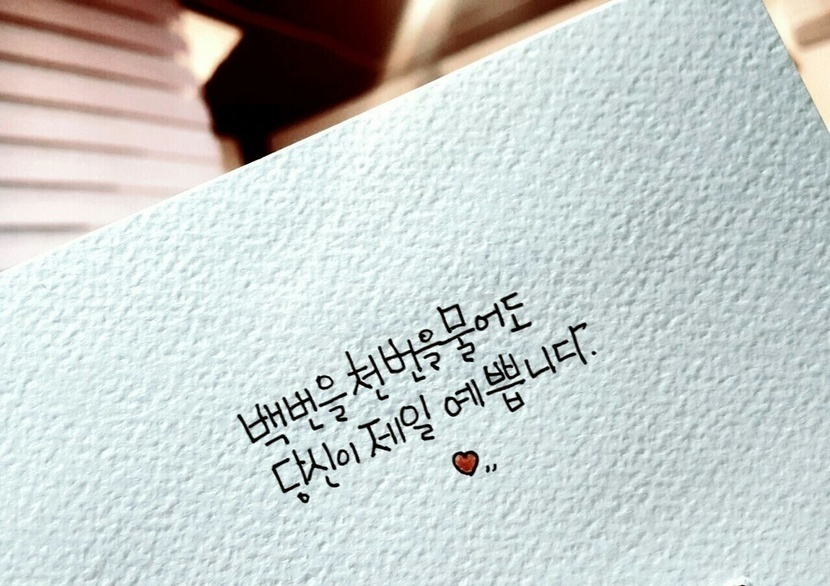 백번을 천번을 물어도
당신이 제일 예쁩니다.
♥,,